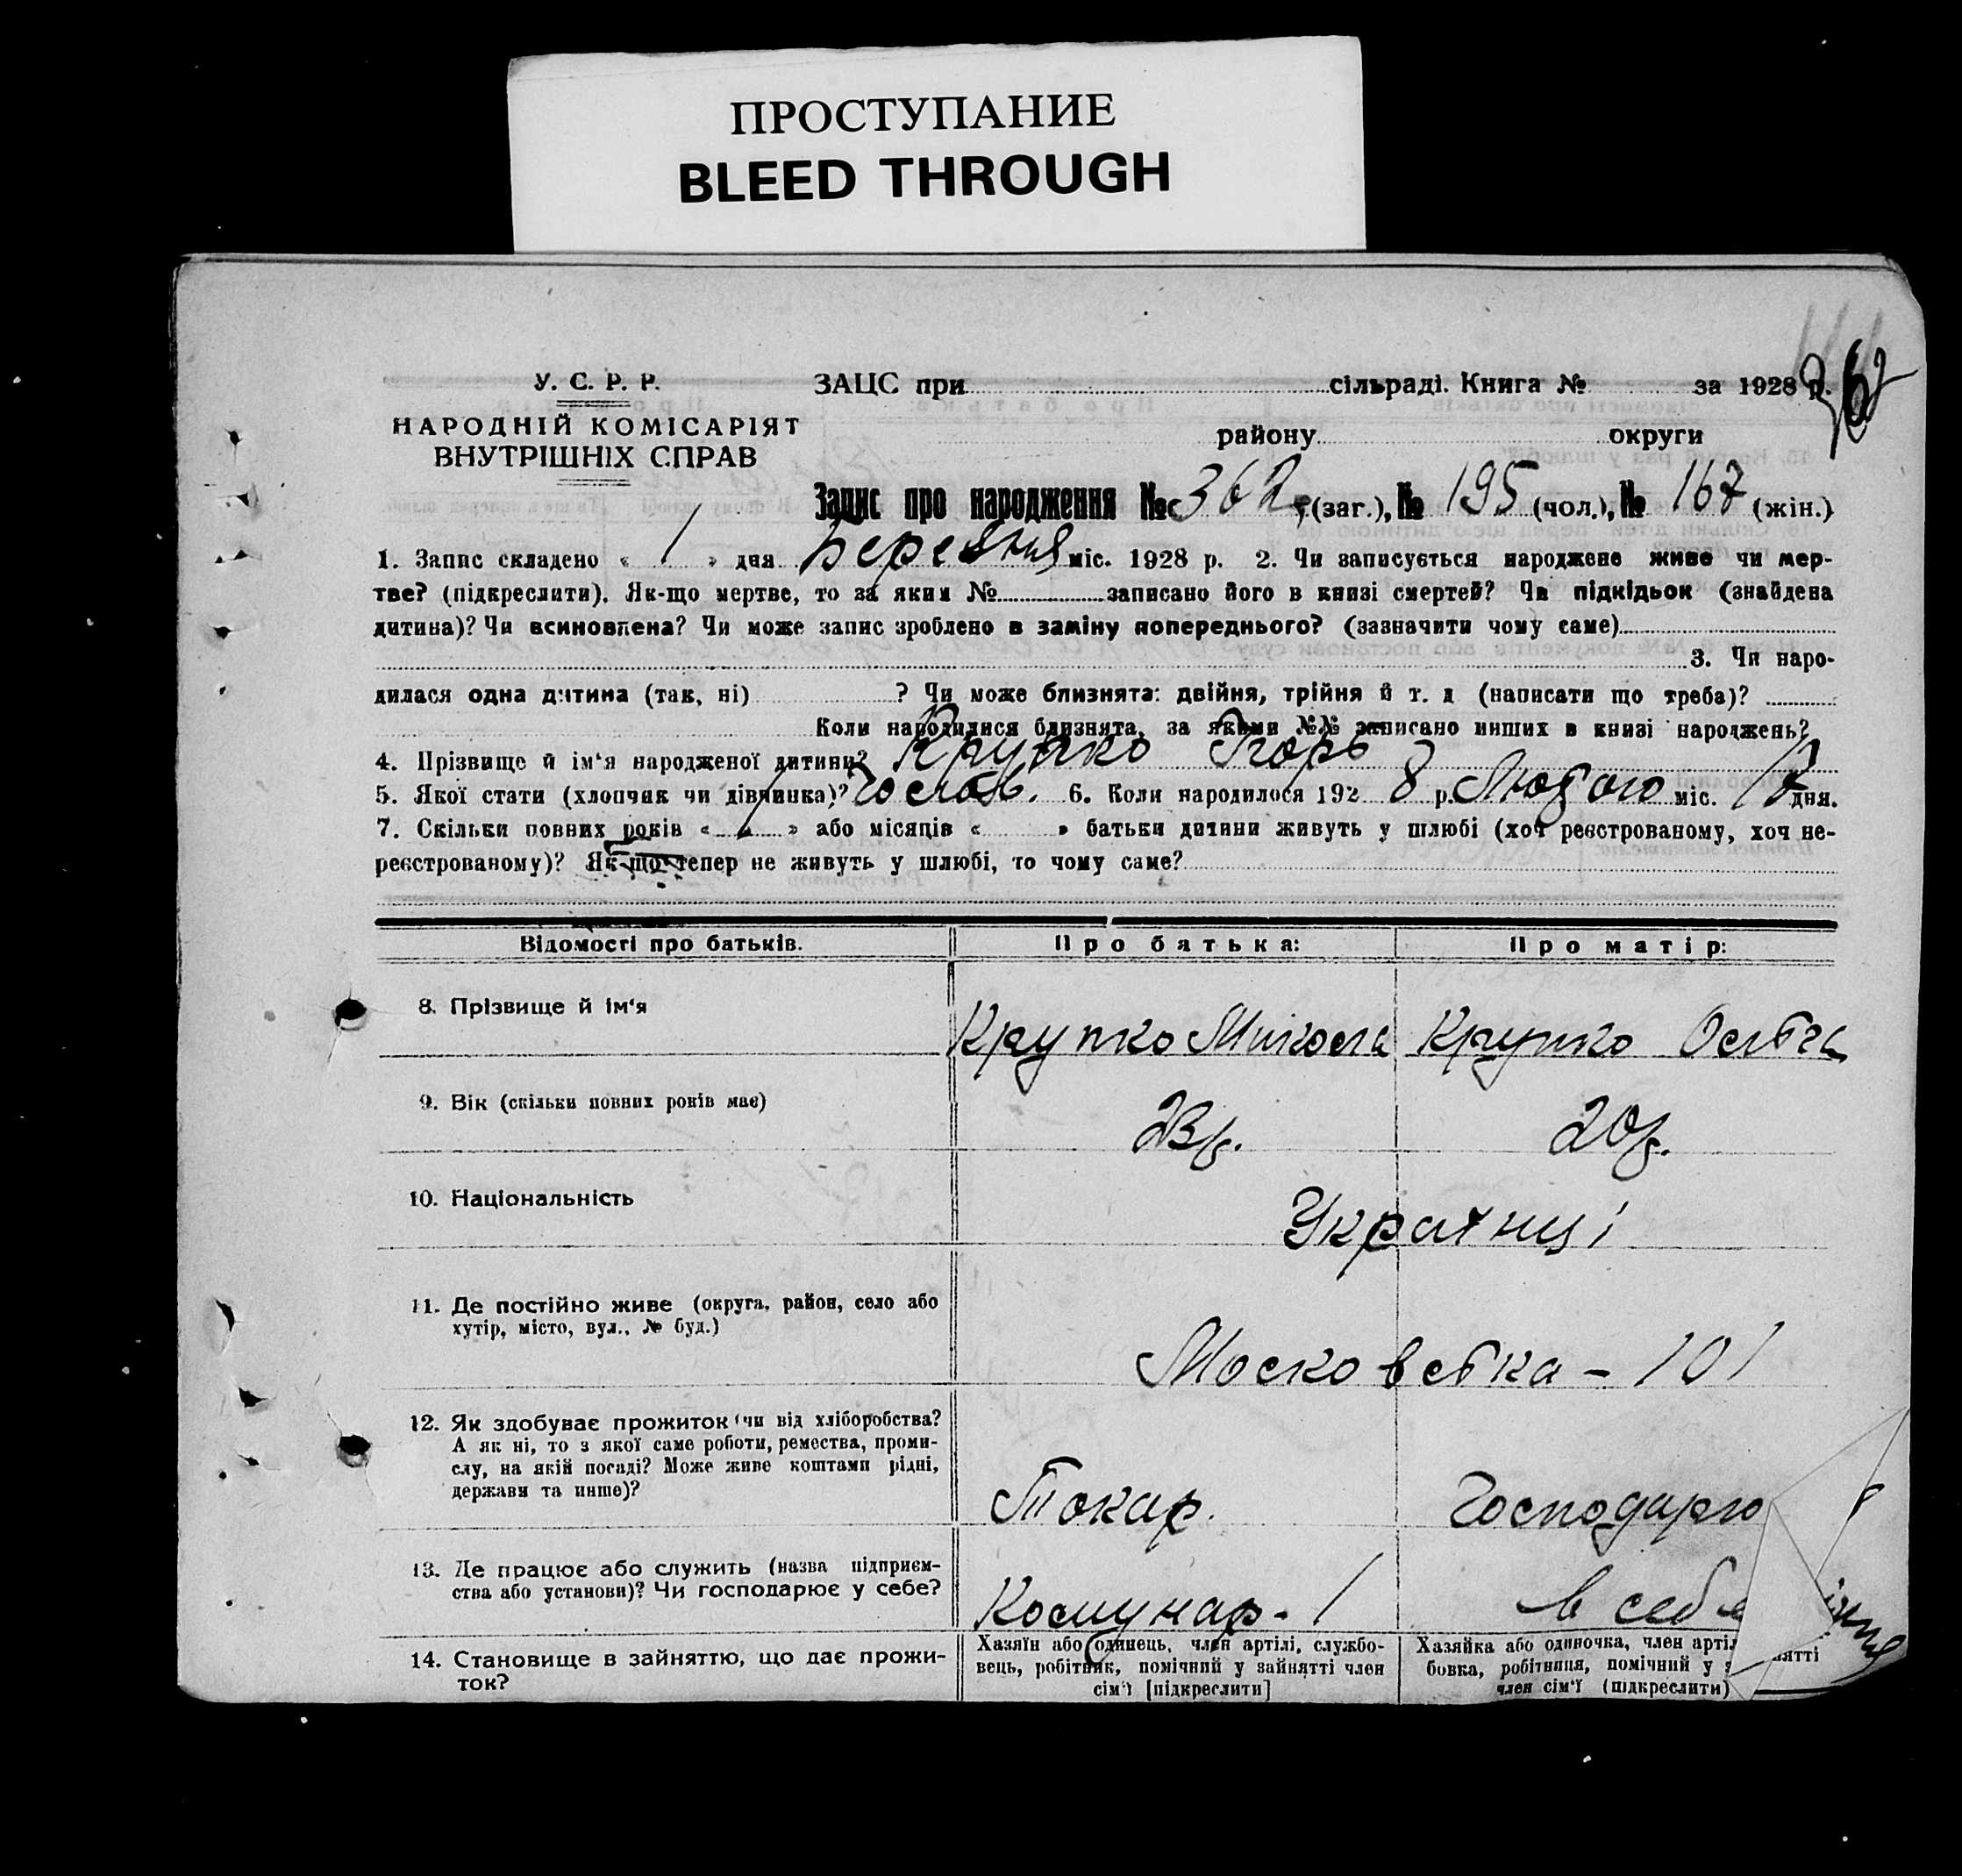 ПРОСТУПАНИЕ
BLEED THROUGH
У. С. Р. Р.
НАРОДНІЙ КОМІСАРІЯТ
ВНУТРІШНІХ СПРАВ
ЗАЦС при сільраді. Книга № за 1928 р.
362
району округи
Запис про народження № 362 (заг.), № 195 (чол.), № 167 (жін.)
1. Запис складено « 1 » дня Березня міс. 1928 р. 2. Чи записується народжене живе чи мер-
тве? (підкреслити). Як-що мертве, то за яким № записано його в книзі смертей? Чи підкідьок (знайдена
дитина)? Чи всиновлена? Чи може запис зроблено в заміну попереднього? (зазначити чому саме)
3. Чи наро-
дилася одна дитина (так, ні) ? Чи може близнята: двійня, трійня й т. д (написати що треба)?
Коли народилися близнята, за якими №№ записано инших в книзі народжень?
4. Прізвище й ім'я народженої дитини? Крупко Ігорь
5. Якої стати (хлопчик чи дівчинка)? 6. Коли народилося 192 8 р. Лютого міс. 17 дня.
7. Скільки повних років « 1 » або місяців « » батьки дитини живуть у шлюбі (хоч реєстрованому, хоч не-
реєстрованому)? Як-що тепер не живуть у шлюбі, то чому саме?
Відомості про батьків. Про батька: Про матір:
8. Прізвище й ім'я Крупко Микола Крупко Ольга
9. Вік (скільки повних років має) 23 р. 20 р.
10. Національність Українці
11. Де постійно живе (округа, район, село або
хутір, місто, вул., № буд.)
Московська - 101
12. Як здобуває прожиток (чи від хліборобства?
А як ні, то з якої саме роботи, ремества, проми-
слу, на якій посаді? Може живе коштами рідні,
держави та инше)?
Токар. Господарю
13. Де працює або служить (назва підприєм-
ства або установи)? Чи господарює у себе?
Комунар - 1 в себе
14. Становище в зайняттю, що дає прожи-
ток?
Хазяїн або одинець, член артілі, службо-
вець, робітник, помічний у зайнятті член
сім'ї [підкреслити]
Хазяйка або одиночка, член артіл
бовка, робітниця, помічний у з нятті
член сім'ї (підкреслити)